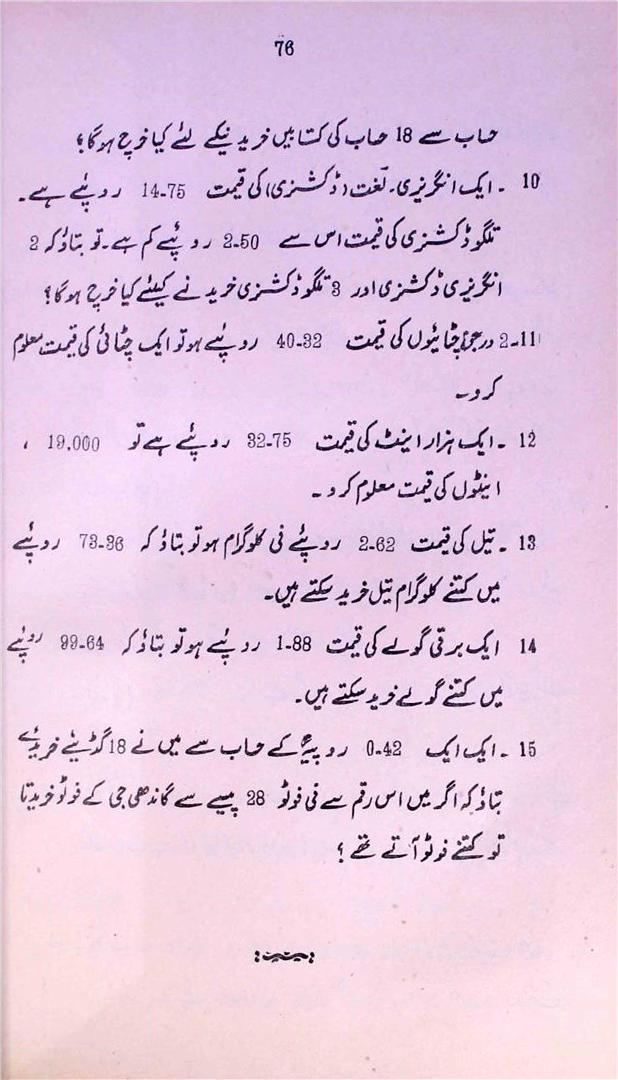 76
حساب سے 18 حساب کی کتابیں خریدنیکے لئے کیا خرچ ہوگا؟
10 ۔ ایک انگریزی۔ لغت (ڈکشنری) کی قیمت 14-75 روپئے ہے۔
تلگو ڈکشنری کی قیمت اس سے 2-50 روپیے کم ہے۔ تو بتاؤ کہ 2
انگریزی ڈکشنری اور 3 تلگو ڈکشنری خریدنے کیلئے کیا خرچ ہوگا؟
11۔ 2 درجن چٹائیوں کی قیمت 40-32 روپیے ہو تو ایک چٹائی کی قیمت معلوم
کرو۔
12 ۔ ایک ہزار اینٹ کی قیمت 32-75 روپئے ہے تو 19.000 ،
اینٹوں کی قیمت معلوم کرو۔
13 ۔ تیل کی قیمت 2-62 روپئے فی کلوگرام ہو تو بتاؤ کہ 73-36 روپئے
میں کتنے کلوگرام تیل خرید سکتے ہیں۔
14 ایک برقی گولے کی قیمت 1-88 روپیے ہو تو بتاؤ کہ 99-64 روپیے
میں کتنے گولے خرید سکتے ہیں۔
15 ۔ ایک ایک 0-42 روپیے کے حساب سے میں نے 18 گڈیے خریدے
بتاؤ کہ اگر میں اس رقم سے فی فوٹو 28 پیسے سے گاندھی جی کے فوٹو خریدتا
تو کتنے فوٹو آتے تھے ؟